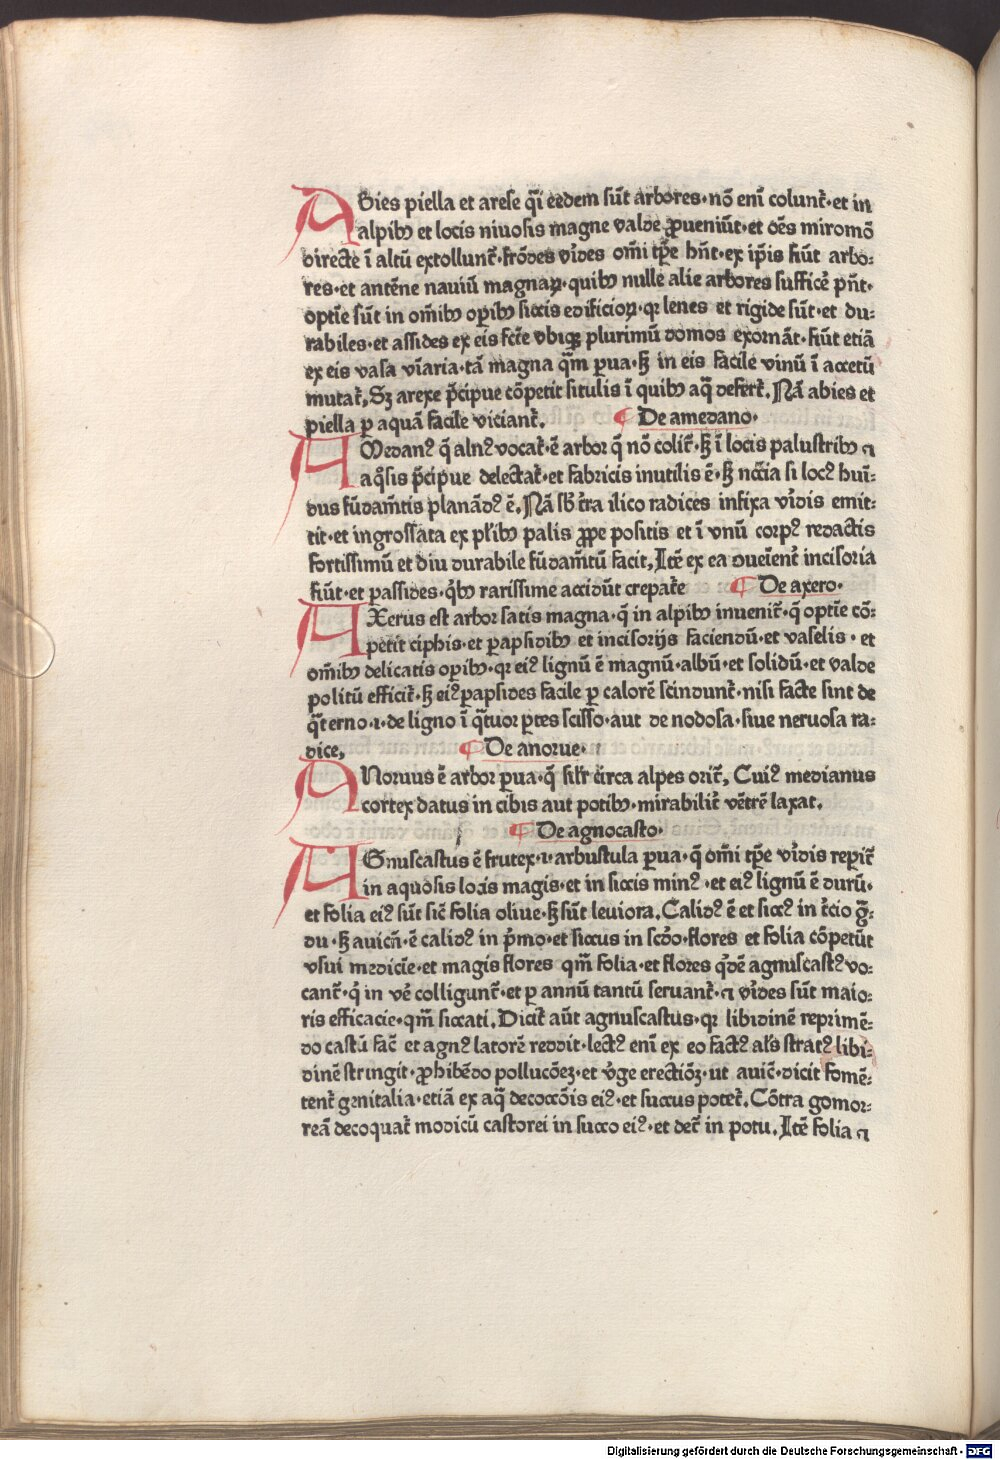 Abies piella et arese q̄i eedem sūt arbores·nō enī colunt᷑·et in
alpibꝫ et locis niuosis magne valde ꝓueniūt·et oēs miromō
directe ī altū extollunt᷑·frōdes v'ides om̄i tꝑe hn̄t·ex ip̄is fiūt arbo⸗
res·et antēne nauiū magnaꝝ·quibꝫ nulle alie arbores suffice᷑ pn̄t·
optīe sūt in om̄ibꝫ oꝑibꝫ siccis edificioꝝ·qꝛ lenes et rigide sūt·et du⸗
rabiles·et assides ex eis fc̄te vbiqꝫ plurimū domos exornāt·fiūt etiā
ex eis vasa viāria·tā magna qm̄ ꝑua·ꝫ in eis facile vinū ī accetū
mutat᷑, Sꝫ arexe p̄cipue cōpetit situlis ī quibꝫ aq̄ defert᷑. Nā abies et
piella ꝑ aquā facile viciant᷑. ¶ De amedano·
AMedanꝰ q̄ alnꝰ vocat᷑·ē arbor q̄ nō colit᷑·ꝫ ī locis palustribꝫ ⁊
aq̄sis p̄cipue delectat᷑·et fabricis inutilis ē·ꝫ nccīa si locꝰ huī⸗
dus fūdam̄tis planādꝰ ē. Nā sb' t'ra ilico radices infixa v'idis emit⸗
tit·et ingrossata ex pl'ibꝫ palis ꝓpe positis et ī vnū corpꝰ redactis
fortissimū et diu durabile fūdam̄tū facit, Itē ex ea oueīent᷑ incisoria
fiūt·et passides·qb'ꝫ rarissime accidūt crepat᷑e ¶ De axero·
AXerus est arbor satis magna·q̄ in alpibꝫ inuenit᷑·q̄ optīe cō⸗
petit ciphis·et ꝑapsidibꝫ et incisorijs faciendū·et vaselis·et
om̄ibꝫ delicatis oꝑibꝫ·qꝛ eiꝰ lignū ē magnū·albū·et solidū·et valde
politū efficit᷑·ꝫ eiꝰ ꝑapsides facile ꝑ calorē scindunt᷑·nisi facte sint de
q̄terno·ı·de ligno ī q̄tuor ꝑtes scisso·aut de nodosa·siue neruosa ra⸗
dice, ¶ De anorue·
ANoruus ē arbor ꝑua·q̄ silr̄ circa alpes orit᷑, Cuiꝰ medianus
cortex datus in cibis aut potibꝫ·mirabilit᷑ vētrē laxat.
¶ De agnocasto·
AGnuscastus ē frutex·ı·arbustula ꝑua·q̄ om̄i tꝑe v'idis reꝑit᷑
in aquosis locis magis·et in siccis minꝰ·et eiꝰ lignū ē durū·
et folia eiꝰ sūt sic̄ folia oliue·ꝫ sūt leuiora. Calidꝰ ē et siccꝰ in t᷑cio gr̄⸗
du·ꝫ auicn̄·ē calidꝰ in p'mo·et siccus in scd̄o·flores et folia cōpetūt
vsui medicīe·et magis flores qm̄ folia·et flores q'dē agnuscastꝰ vo⸗
cant᷑·q' in ve᷑ colligunt᷑·et ꝑ annū tantū seruant᷑·⁊ v'ides sūt maio⸗
ris efficacie·qm̄ siccati. Dicit᷑ aūt agnuscastus·qꝛ libidinē reprimē⸗
do castū fac̄ et agnꝰ latorē reddit·lectꝰ enī ex eo factꝰ als̄ stratꝰ libi⸗
dinē stringit·ꝓhibēdo pollucōeꝫ·et v'ge erectiōꝫ·ut auic̄·dicit fomē⸗
tent᷑ genitalia·etiā ex aq̄ decoccōis eiꝰ·et succus potet᷑. Cōtra gomor⸗
reā decoquat᷑ modicū castorei in succo eiꝰ·et det᷑ in potu. Itē folia ⁊
Digitalisierung gefördert durch die Deutsche Forschungsgemeinschaft - DFG